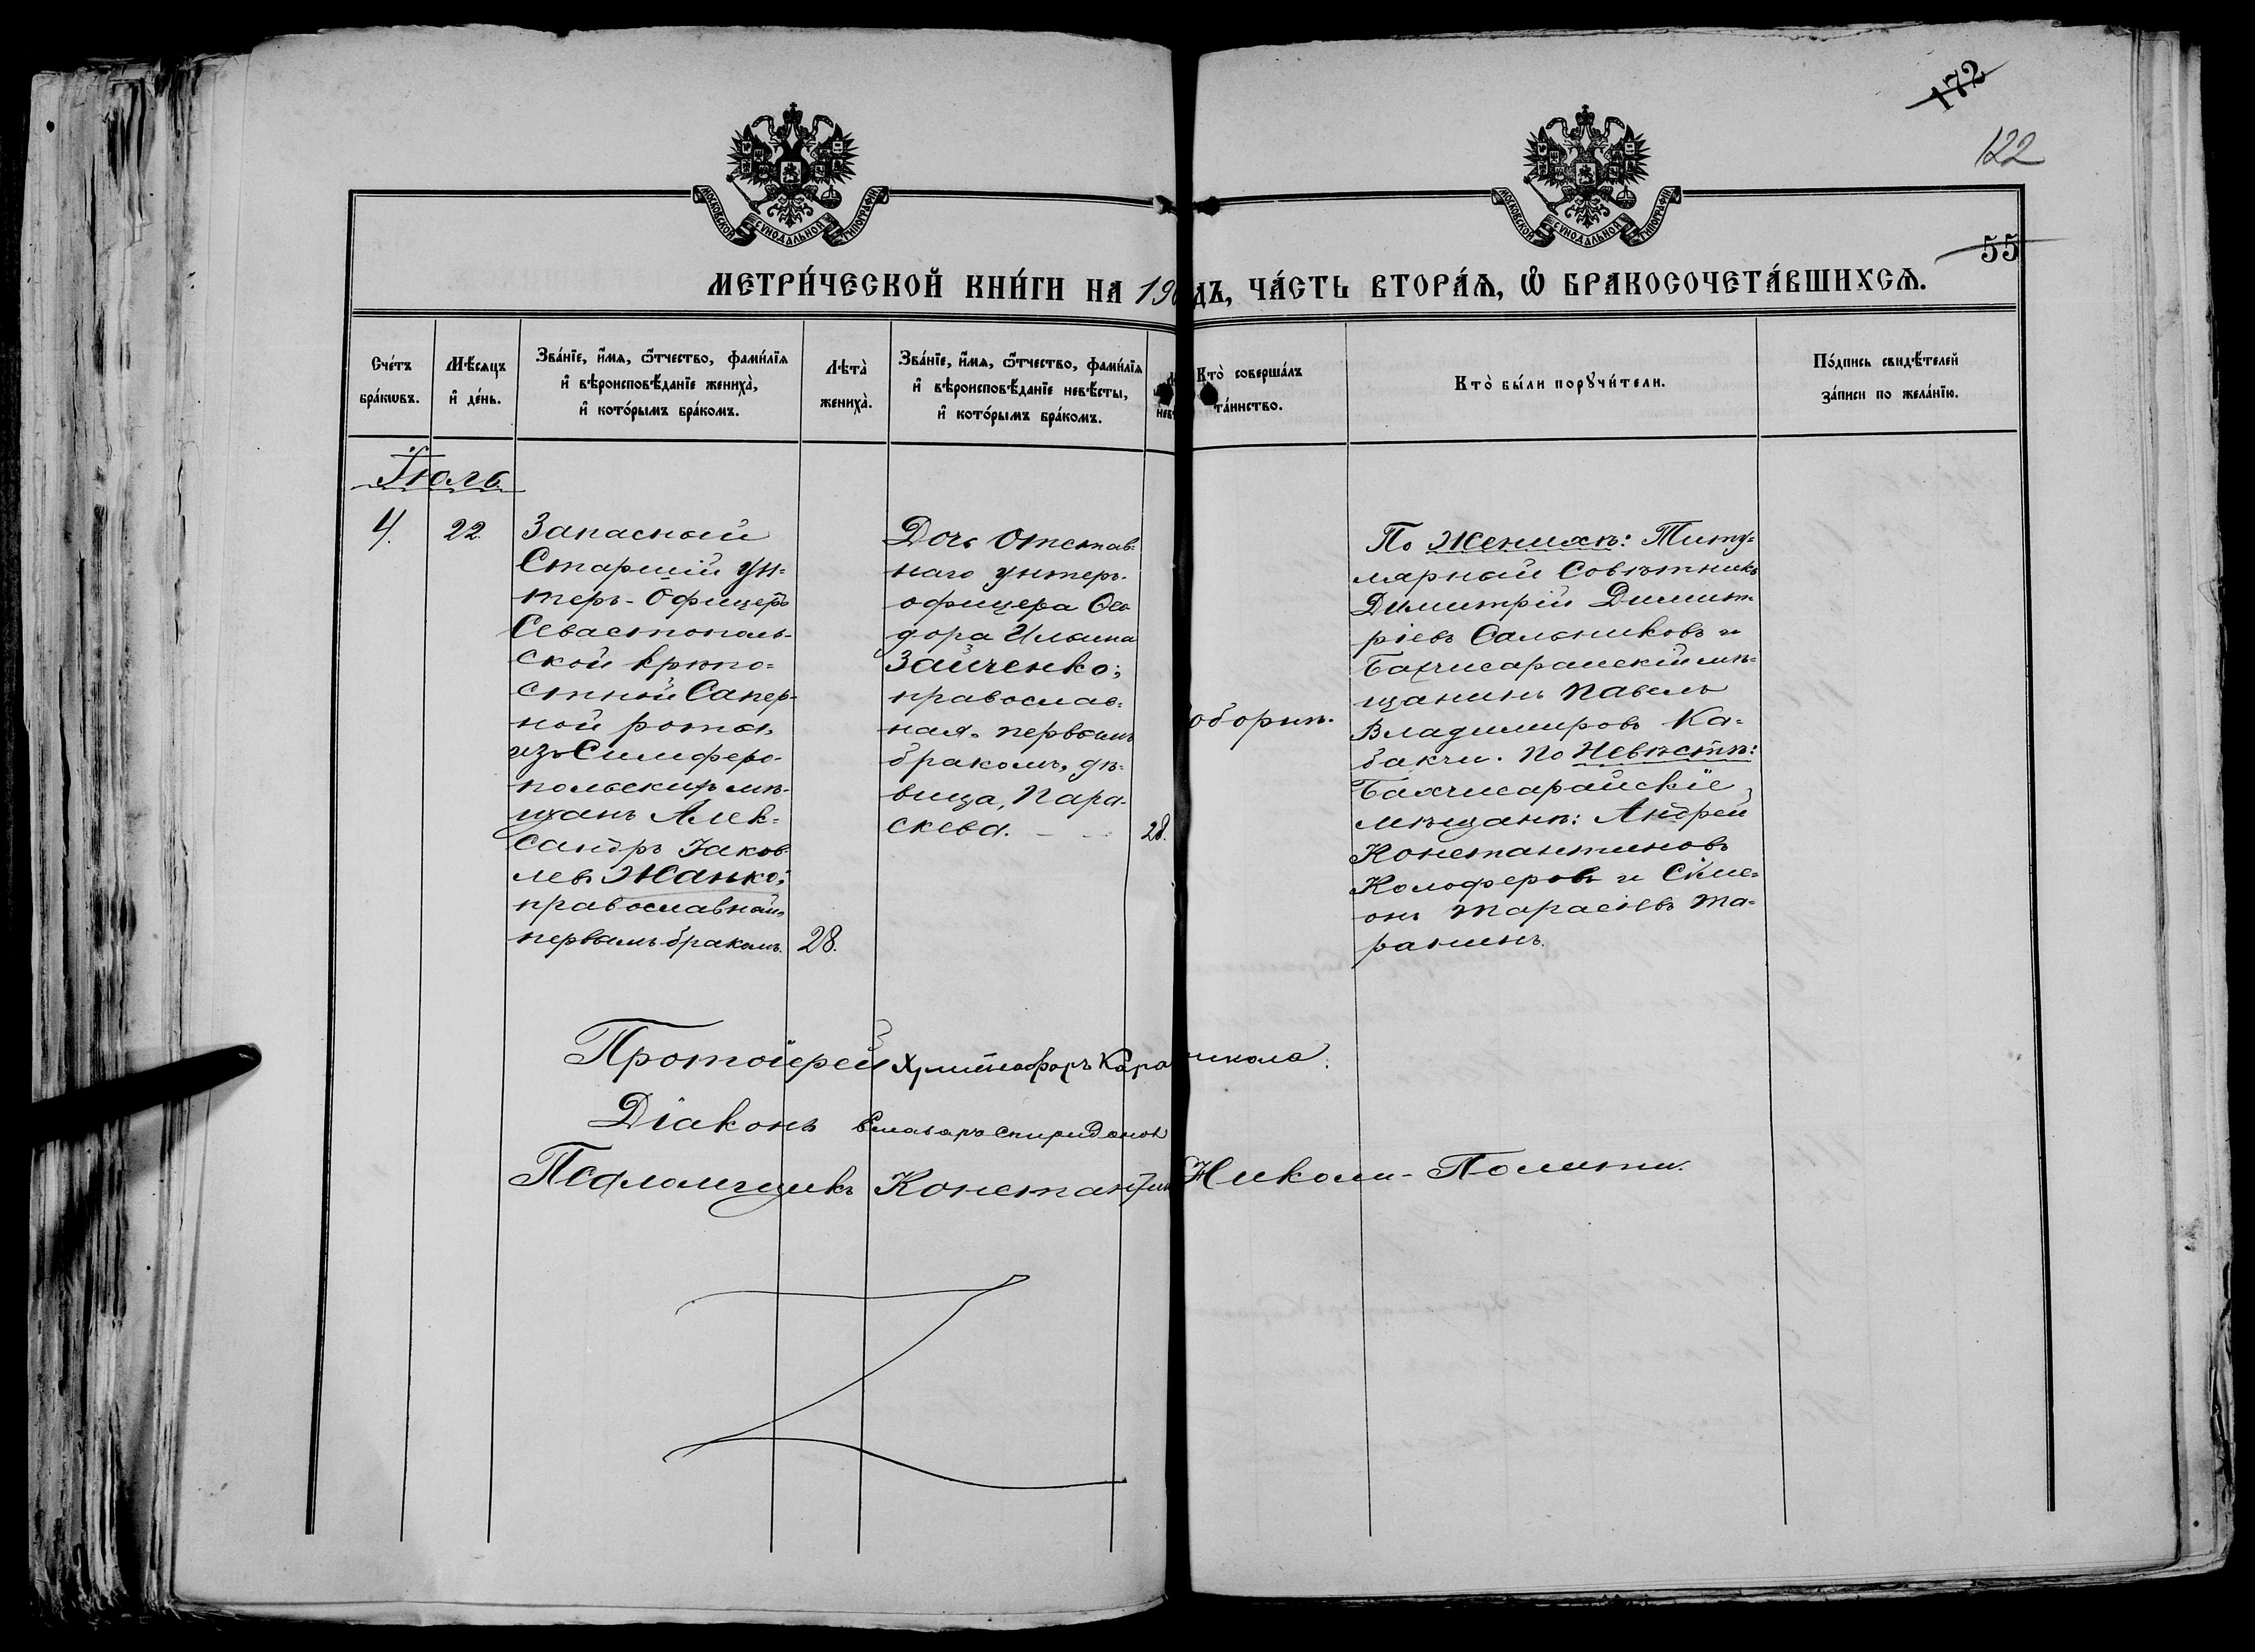 172
122
55
МОСКОВСКОЙ СѴНОДАЛЬНОЙ ТИПОГРАФІИ
МОСКОВСКОЙ СѴНОДАЛЬНОЙ ТИПОГРАФІИ
МЕТРИ́ЧЕСКОЙ КНИ́ГИ НА 190 ДЪ, ЧА́СТЬ ВТОРА́Ѧ, Ѡ҆ БРАКОСОЧЕТА́ВШИХСѦ.
Сче́тъ
бра́кѡвъ.
Мѣ́сѧцъ
и҆ де́нь.
Зва́нїе, и҆́мѧ, ѻ҆́тчество, фами́лїѧ
и҆ вѣроисповѣ́данїе жениха̀,
и҆ кото́рымъ бра́комъ.
Лѣта̀
жениха̀.
Зва́нїе, и҆́мѧ, ѻ҆́тчество, фами́лїѧ
и҆ вѣроисповѣ́данїе невѣ́сты,
и҆ кото́рымъ бра́комъ.
Кто̀ соверша́лъ
та́инство.
Кто̀ бы́ли порꙋчи́тели.
По́дпись свидѣ́телей
за́писи по жела́нїю.
Іюль
4.
22.
Запасный
Старшій ун-
теръ-Офицеръ
Севастополь-
ской крѣпо-
стной Сапер-
ной роты,
изъ Симферо-
польскихъ мѣ-
щанъ Алек-
сандръ Іаков-
левъ Жанко;
православный,
первымъ бракомъ.
28.
Дочь Отстав-
наго унтеръ-
офицера Ѳео-
дора Ильина
Зайченко;
православ-
ная, первымъ
бракомъ, дѣ-
вица, Пара-
скева.
28.
оборнѣ.
По Женихѣ: Титу-
лярный Совѣтникъ
Димитрій Димит-
ріевъ Сальниковъ и
Бахчисарайскій мѣ-
щанинъ Павелъ
Владимировъ Ка-
бакчи. По Невѣстѣ:
Бахчисарайскіе
мѣщане: Андрей
Константиновъ
Колоферовъ и Симе-
онъ Тарасіевъ Та-
ранинъ.
Протоіерей Христофоръ Кара никола.
Діаконъ Спиридоновъ
Псаломщикъ Константин Николи-Полити.